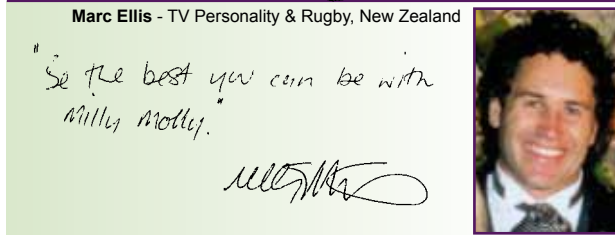 Marc Ellis - TV Personality & Rugby, New Zealand
"Be the best you can be with
Milly Molly."